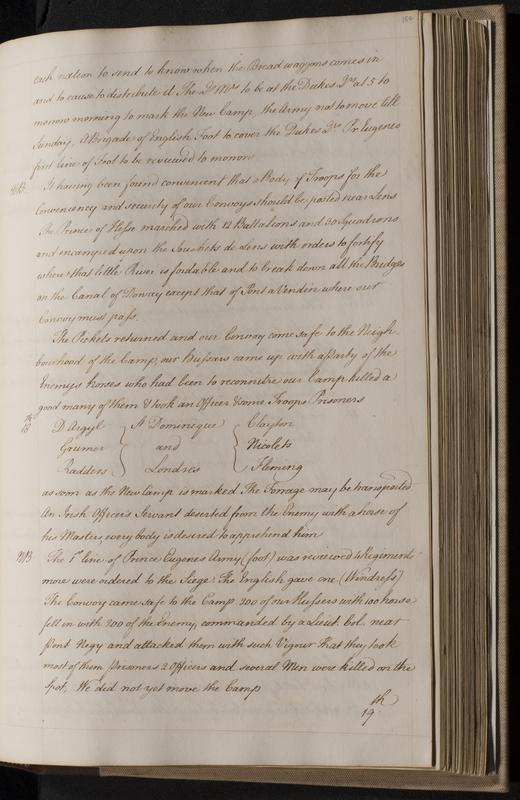 each nation to send to know when the Bread waggons comes in
and to cause to distribute it The Qr Mrs to be at the Dukes Qrs at 5 to
morow morning to mark the New Camp, the Army not to move till
Sunday, A Brigade of English Foot to cover the Dukes Qrs Pr Eugenes
first Line of Foot to be reviewed to morow
NB It having been found convenient that a Body of Troops for the
Conveniency and security of our Convoys should be posted near Lens
The Prince of Hesse marched with 12 Battalions and 30 Squadrons
and encamped upon the Souchets de Lens with orders to fortify
where that little River is fordable and to break down all the Bridges
on the Canal of Doway except that of Pont a Vendin where our
Convoy must pass.
The Pickets returned and our Convoy come safe to the Neigh
bourhood of the Camp, our Hussars came up with a Party of the
Enemys horses who had been to reconnitre our Camp killed a
good many of them & took an Officer & some Troops Prisoners
18th D Argyl St Dominique Clayton
Grumer and Nicolets
Radders Londres Fleming
as soon as the New Camp is marked The Forrage may be transported
An Irish Officers Servant deserted from the Enemy with a horse of
his Masters every body is desired to apprehend him
NB The 1st line of Prince Eugenes Army (foot) was reviewed 4 Regiments
more were ordered to the Siege: The English gave one (Windress)
The Convoy came safe to the Camp 200 of our Hussers with 100 horse
fell in with 200 of the Enemy, commanded by a Lieut Col. near
Pont Negy and attacked them with such Vigour That they took
most of them prisoners 2 Officers and several Men were killed on the
Spot, We did not yet move the Camp
19th